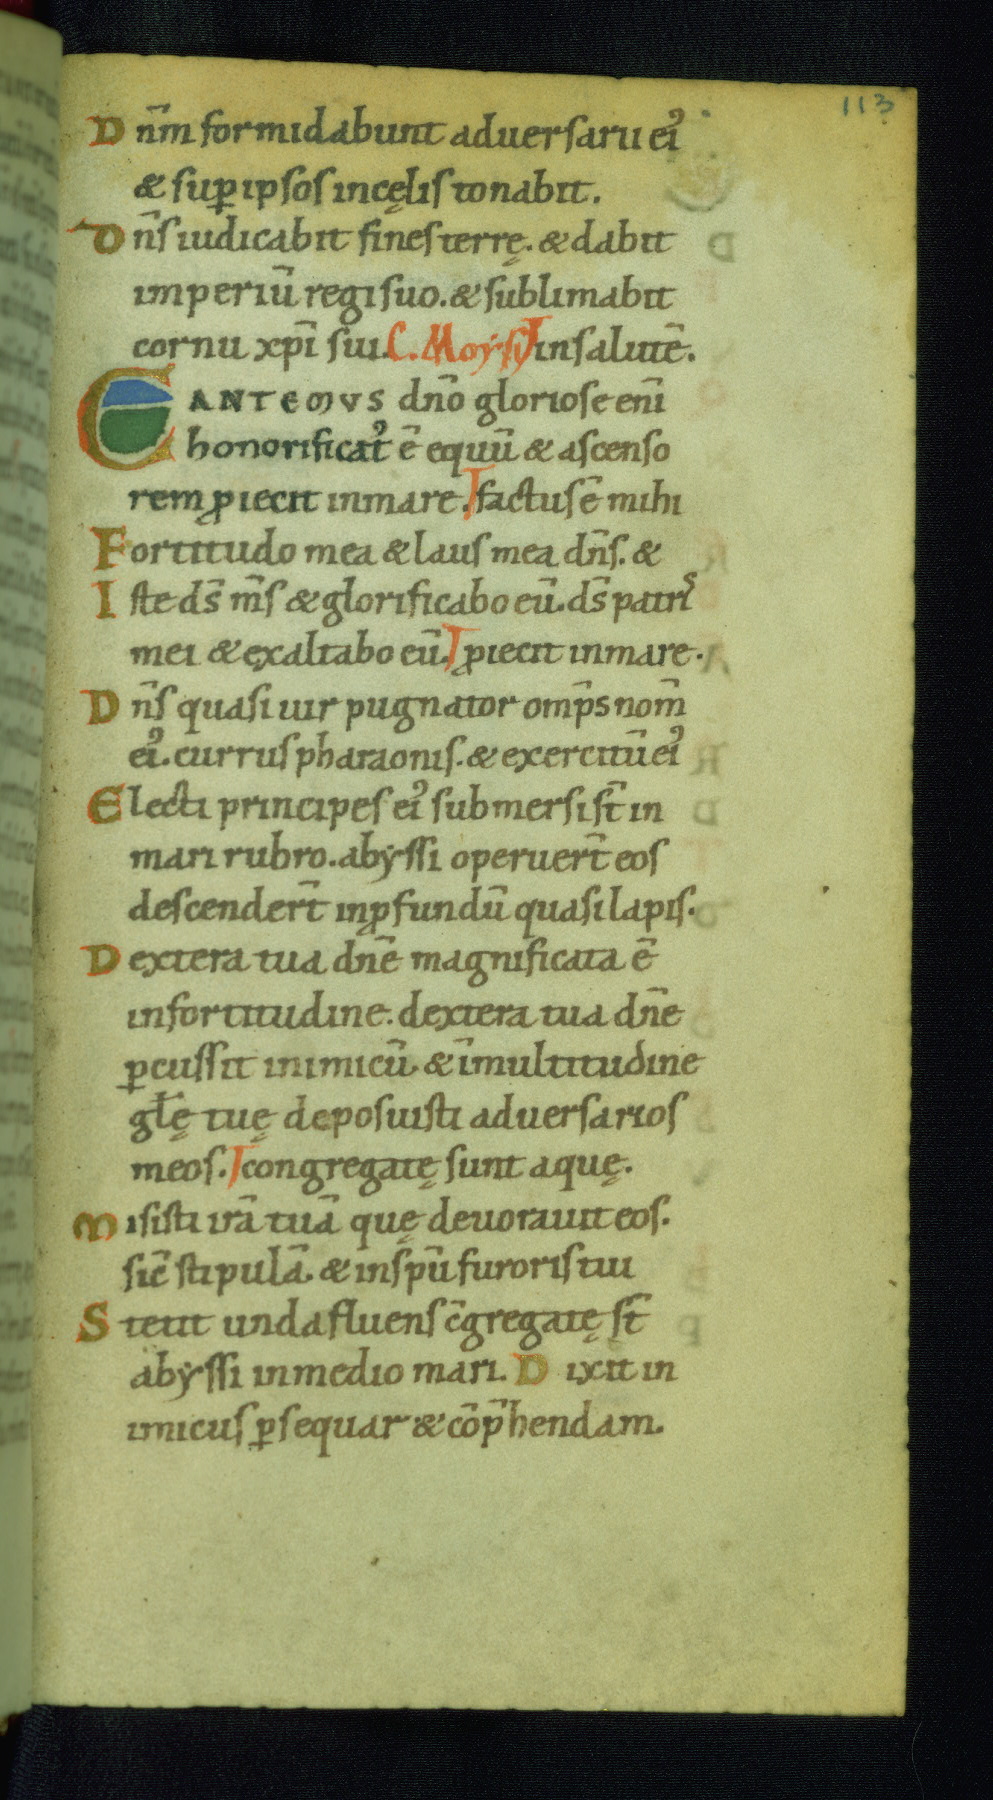 113
Dn̄m formidabunt aduersarii ei᾽
& sup̱ ipsos in cęlis tonabit.
Dn̄s iudicabit fines terrę. & dabit
imperiū regi suo. & sublimabit
cornu xp̄i sui. C. Moẏsi in salutē.
CANTEMVS dn̄o gloriose eni̅
honorificat᾽ ē equū & ascenso
rem ꝓiecit in mare. factus ē mihi
Fortitudo mea & laus mea dn̄s. &
Iste ds̄ ms̄ & glorificabo eū. ds̄ patri᾽
mei & exaltabo eū. ꝓiecit in mare.
Dn̄s quasi uir pugnator omp̄s nom̄
ei᾽. currus pharaonis. & exercitū ei᾽
Electi principes ei᾽ submersi st̄ in
mari rubro. abẏssi operuert̄ eos
descendert̄ in ꝓfundū quasi lapis.
Dextera tua dn̄e magnificata ē
in fortitudine. dextera tua dn̄e
ꝑcussit inimicū. & ī multitudine
gl̄ę tuę deposuisti aduersarios
meos. congregatę sunt aquę.
Misisti irā tuā quę deuorauit eos.
sic̄ stipulā. & in sp̄u furoris tui
Stetit unda fluens c̄gregatę st̄
abẏssi in medio mari. Dixit in
imicus ꝑsequar & cōp̄hendam.